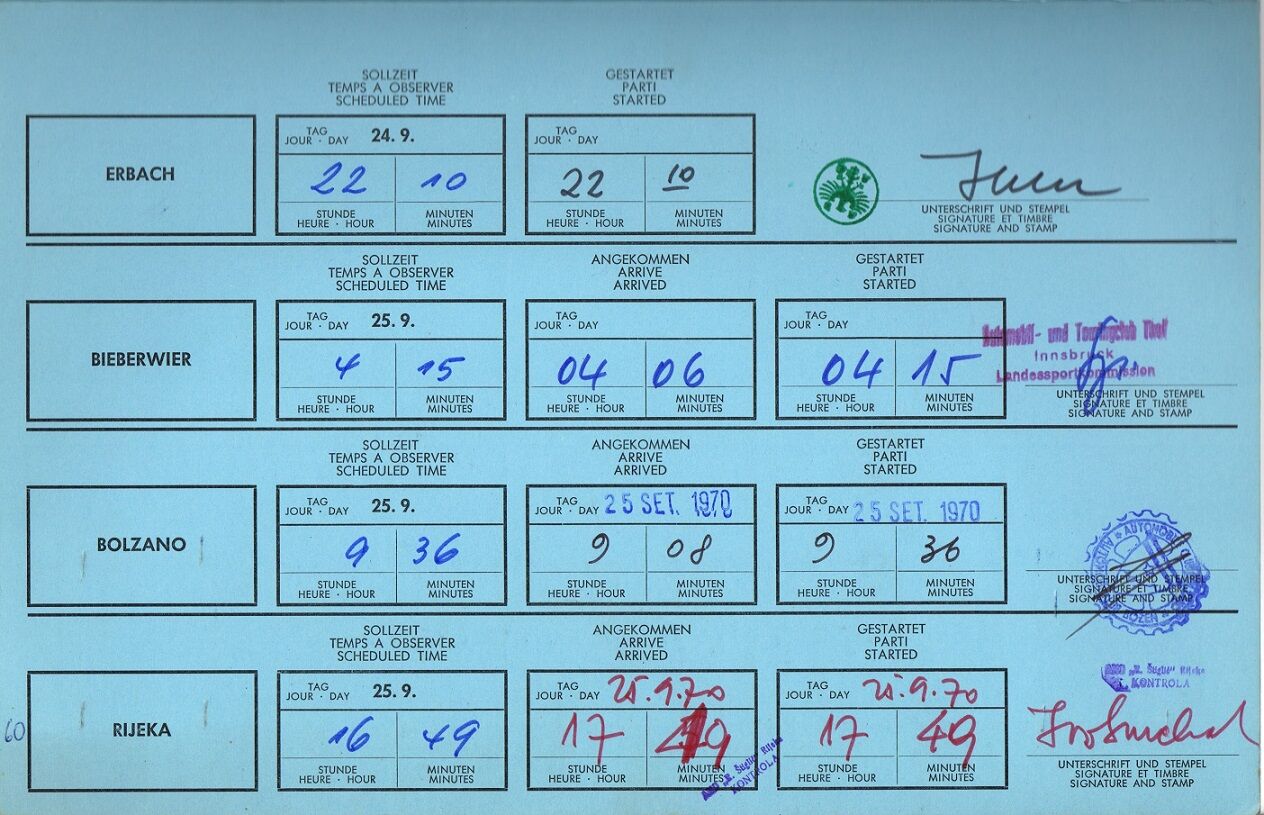 SOLLZEIT
TEMPS A OBSERVER
SCHEDULED TIME
GESTARTET
PARTI
STARTED
ERBACH
TAG
JOUR · DAY 24. 9.
22 10
STUNDE
HEURE · HOUR
MINUTEN
MINUTES
TAG
JOUR · DAY
22 10
STUNDE
HEURE · HOUR
MINUTEN
MINUTES
UNTERSCHRIFT UND STEMPEL
SIGNATURE ET TIMBRE
SIGNATURE AND STAMP
SOLLZEIT
TEMPS A OBSERVER
SCHEDULED TIME
ANGEKOMMEN
ARRIVE
ARRIVED
GESTARTET
PARTI
STARTED
BIEBERWIER
TAG
JOUR · DAY 25. 9.
4 15
STUNDE
HEURE · HOUR
MINUTEN
MINUTES
TAG
JOUR · DAY
04 06
STUNDE
HEURE · HOUR
MINUTEN
MINUTES
TAG
JOUR · DAY
04 15
STUNDE
HEURE · HOUR
MINUTEN
MINUTES
Automobil- und Touringclub
Innsbruck
Landessportkommission
UNTERSCHRIFT UND STEMPEL
SIGNATURE ET TIMBRE
SIGNATURE AND STAMP
SOLLZEIT
TEMPS A OBSERVER
SCHEDULED TIME
ANGEKOMMEN
ARRIVE
ARRIVED
GESTARTET
PARTI
STARTED
BOLZANO
TAG
JOUR · DAY 25. 9.
9 36
STUNDE
HEURE · HOUR
MINUTEN
MINUTES
TAG
JOUR · DAY 25 SET. 1970
9 08
STUNDE
HEURE · HOUR
MINUTEN
MINUTES
TAG
JOUR · DAY 25 SET. 1970
9 36
STUNDE
HEURE · HOUR
MINUTEN
MINUTES
BOZEN
UNTERSCHRIFT UND STEMPEL
SIGNATURE ET TIMBRE
SIGNATURE AND STAMP
SOLLZEIT
TEMPS A OBSERVER
SCHEDULED TIME
ANGEKOMMEN
ARRIVE
ARRIVED
GESTARTET
PARTI
STARTED
60
RIJEKA
TAG
JOUR · DAY 25. 9.
16 49
STUNDE
HEURE · HOUR
MINUTEN
MINUTES
TAG
JOUR · DAY 25.9.70
17 49
STUNDE
HEURE · HOUR
MINUTEN
MINUTES
Rijeka
KONTROLA
TAG
JOUR · DAY 25.9.70
17 49
STUNDE
HEURE · HOUR
MINUTEN
MINUTES
Rijeka
KONTROLA
UNTERSCHRIFT UND STEMPEL
SIGNATURE ET TIMBRE
SIGNATURE AND STAMP